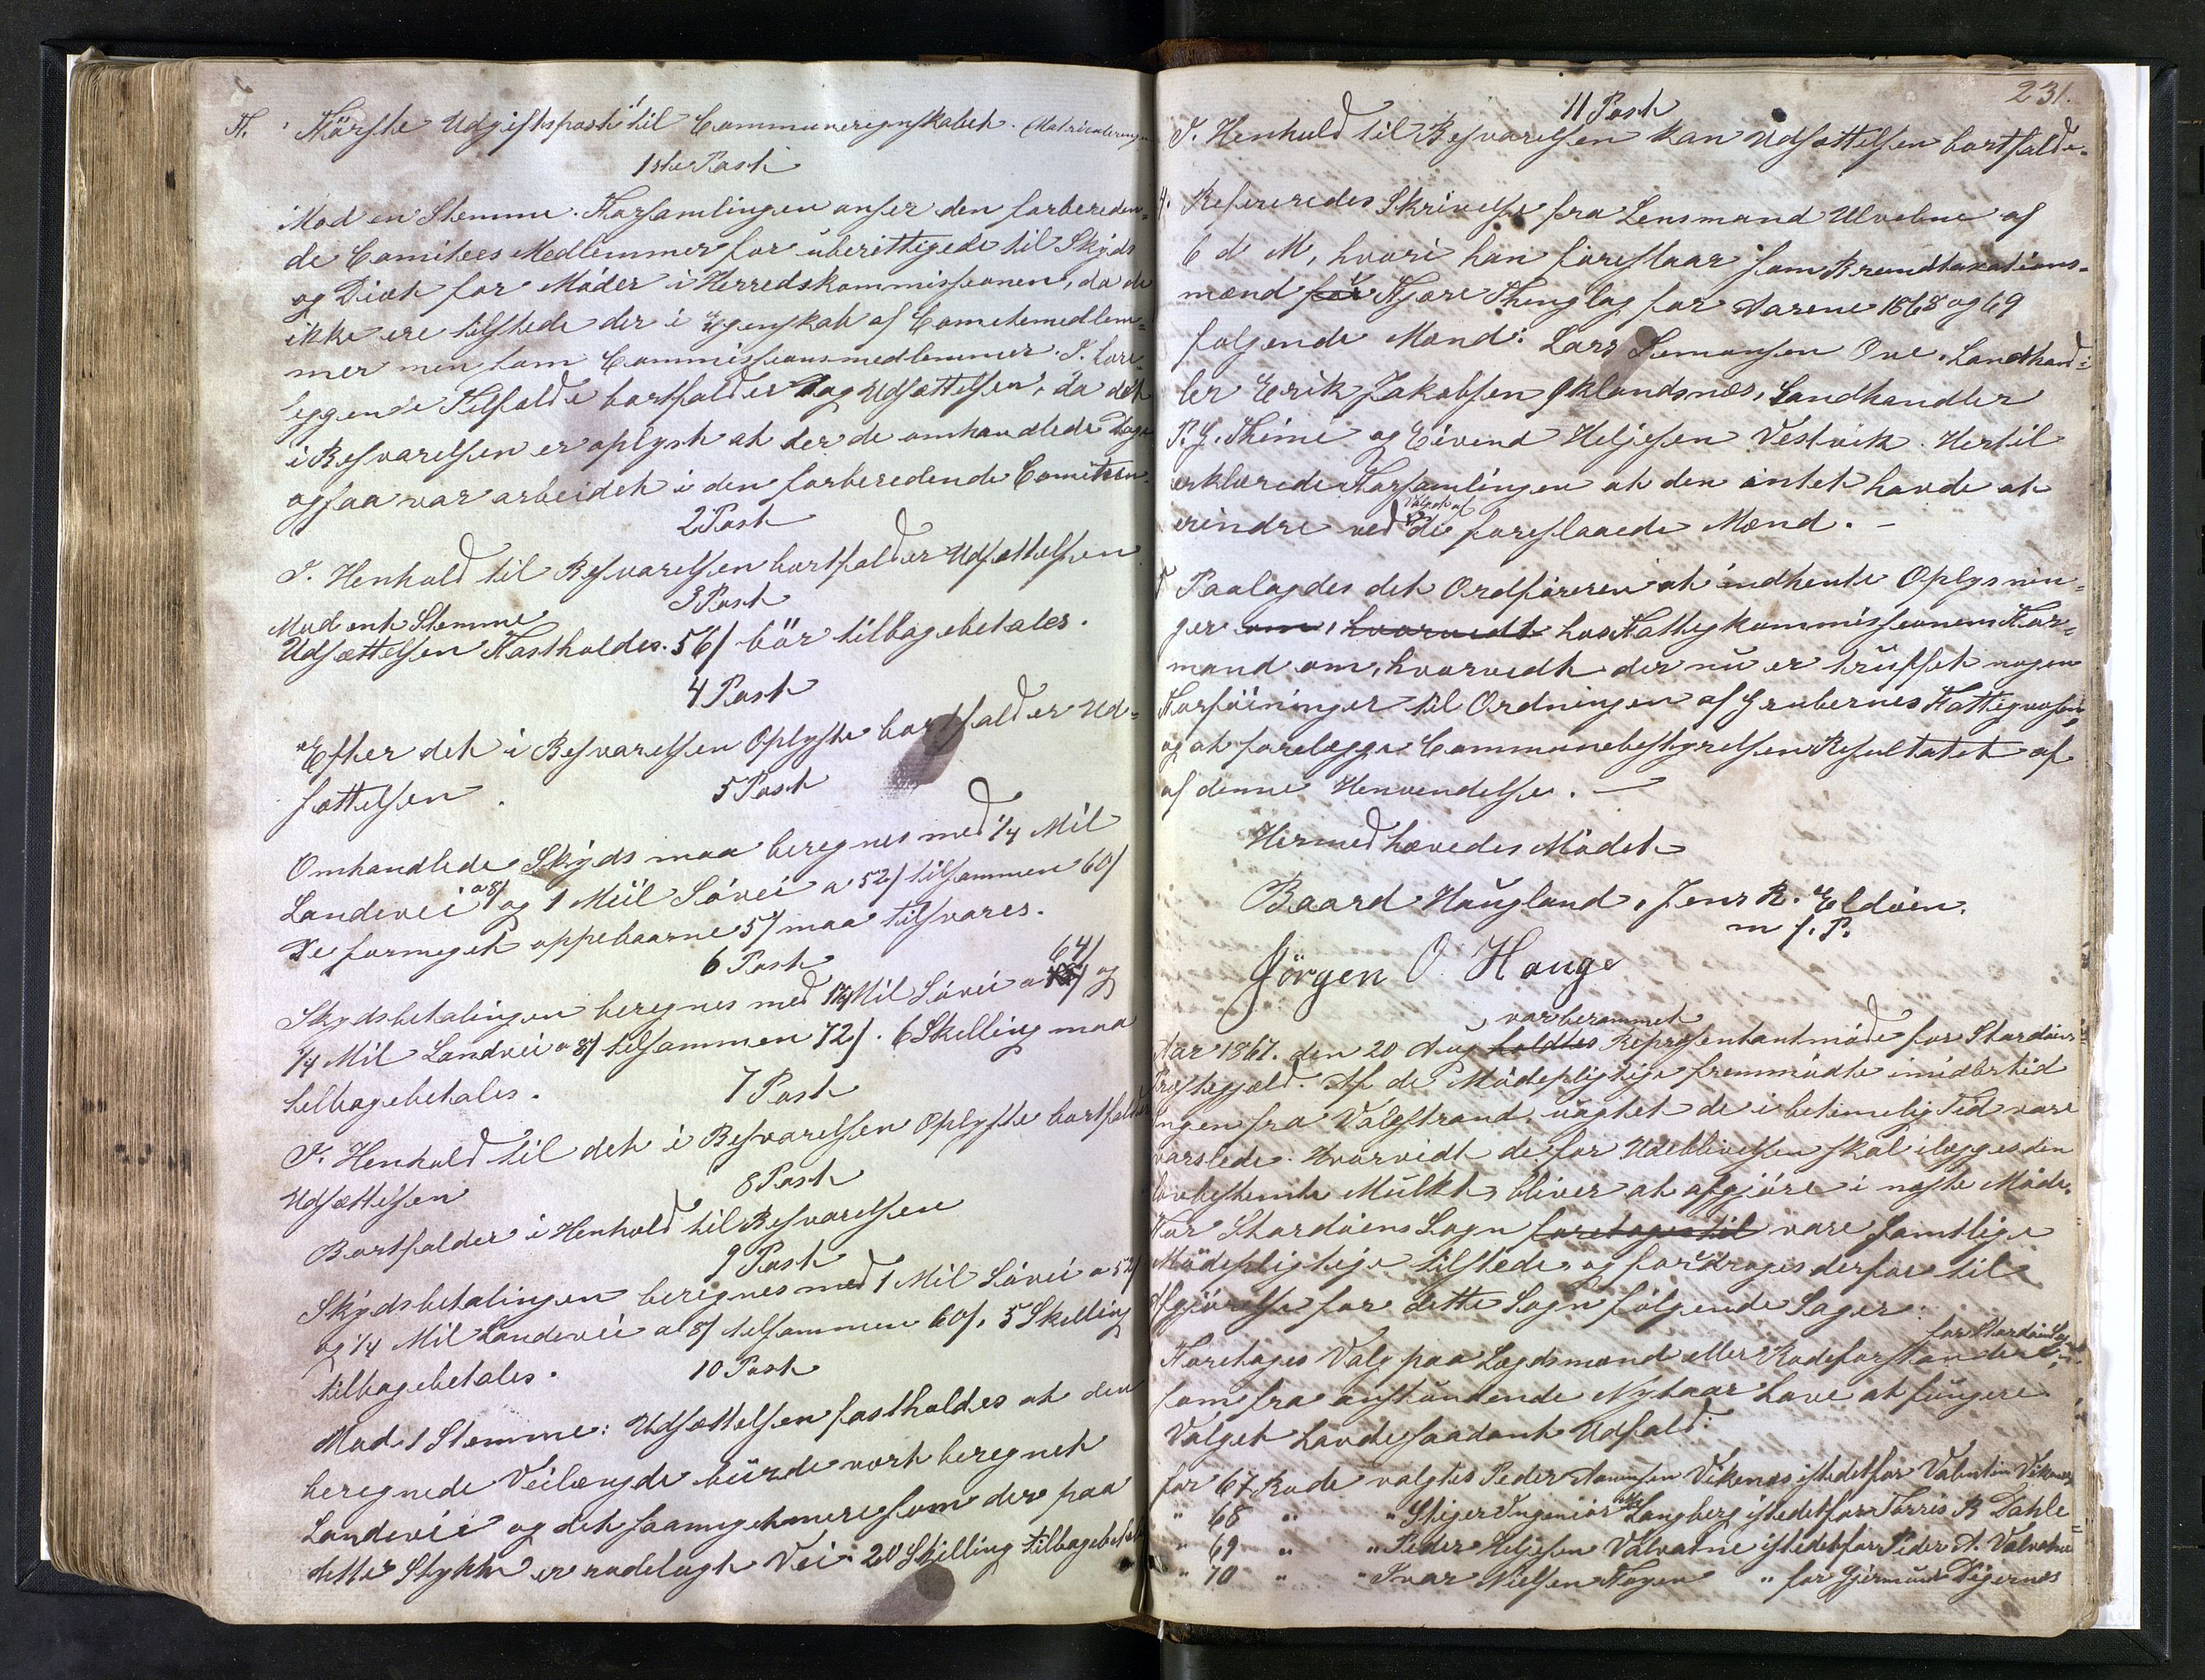 A. Förste Udgiftspost til Communeregnskabet. (Matriculeringen
1ste Post
Mod en Stemme. Forsamlingen anser den forbereden-
de Comitees Medlemmer for uberettigede til Skyds
og Diæt for Möder i Herredskommissionen, da de
ikke ere tilstede der i Egenskab af Cometemedlem-
mer men som Commissionsmedlemmer. I fore-
liggende Tilfælde bortfalder dog Udsættelsen, da det
i Besvarelsen er oplyst at der de omhandlede Dage
ogsaa var arbeidet i den forberedende Comiteen.
2 Post
I Henhold til Besvarelsen bortfalder Udsættelsen
3 Post
Mod en Stemme
Udsættelsen Fastholdes. 56/ bör tilbagebetales.
4 Post
Efter det i Besvarelsen Oplyste bortfalder Ud-
sættelsen.
5 Post
Omhandlede Skyds maa beregnes med 1/4 Mil
Landevei a 8/ og 1 Miil Söveí a 52/ tilsammen 60/
De formeget oppebaarne 5/ maa tilsvares.
6 Post
64/
Skydsbetalingen beregnes med 1 1/4 Mil Sövei a og
1/4 Mil Landvei a 8/ tilsammen 72/. 6 Skilling maa
tilbagebetales.
7 Post
I Henhold til det i Besvarelsen Oplyste bortfalder
Udsættelsen
8 Post
Bortfalder i Henhold til Besvarelsen
9 Post
Skydsbetalingen beregnes med 1 Mil Sövei a 52/
og 1/4 Mil Landevei a 8/ tilsammen 60/. 5 Skilling
tilbagebetales.
10 Post
Mod 1 Stemme: Udsættelsen fastholdes at den
beregnede Veilængde burde vort beregnet
Landevei og det saameget mere som der paa
dette Stykke er rodelagt Vei. 20 Skilling tilbagebetales
231.
11 Post
I. Henhold til Besvarelsen kan Udsættelsen bortfalde.
Refereredes Skrivelse fra Lensmand Ulvebne af
6 d M, hvori han foreslaar som Brandtaxations-
mænd for Fjære Thinglag for Aarene 1868 og 69
følgende Mænd: Lars Simonsen Ove, Landhand-
ler Erik Jakobsen Øklandsnæs, Landhandler
P. G. Thime og Eivind Heljesen Vestvik. Hertil
erklærede Forsamlingen at den intet havde at
Valget af
erindre ved de foreslaaede Mænd. -
Paalagdes det Ordföreren at indhente Oplysnin-
ger om, hvorvidt hos Fattigkommissionens For-
mand om, hvorvidt der nu er truffet nogen
Forföininger til Ordningen af Grubernes Fattigvæsen,
og at forelægge Communebestyrelsen Resultatet af
af denne Henvendelse. -
Hermed hævedes Mödet
Baard Haugland, Jens R. Eldöen.
m f. P.
Jörgen O Hauge
var berammet
Aar 1867. den 20 Aug holdtes Repræsentantmöde for Stordöens
Præstegjæld. Af de Mödepligtige fremmödte imidlertid
Ingen fra Valestrand, uagtet de i betimelig Tid vare
varslede. Hvorvidt de for Udeblivelsen skal ilægges den
lovbestemte Mulkt, bliver at afgjöre i næste Möde.
For Stordöens Sogn foretages til vare samtlige
Mödepligtige tilstede, og foretages derfor til
Afgjörelse for dette Sogn fölgende Sager:
for Stordöen Sogn
Foretages Valg paa Lægdsmænd eller Rodeforstandere
som fra anstundende Nytaar have at fungere
Valget havde saadant Udfald:
for 67 Rode valgtes Peder Aamunsen Vikenæs istedetfor Valentin Vikenæs
" 68 " " Stiger Ingeniör Langberg istedetfor Torris B Dahle
" 69 " " Peder Heljesen Valvatne istedetfor Peder A. Valvatne
" 70 " " Ivar Nielsen Tagen " for Gjermund Digernes